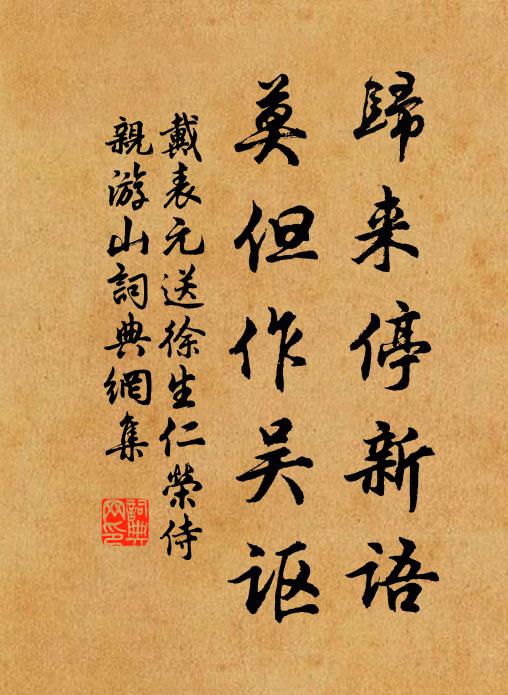 歸来停新语
莫但作吴讴
戴表元送徐生仁榮侍
親游山詞典網集
詞典
网印